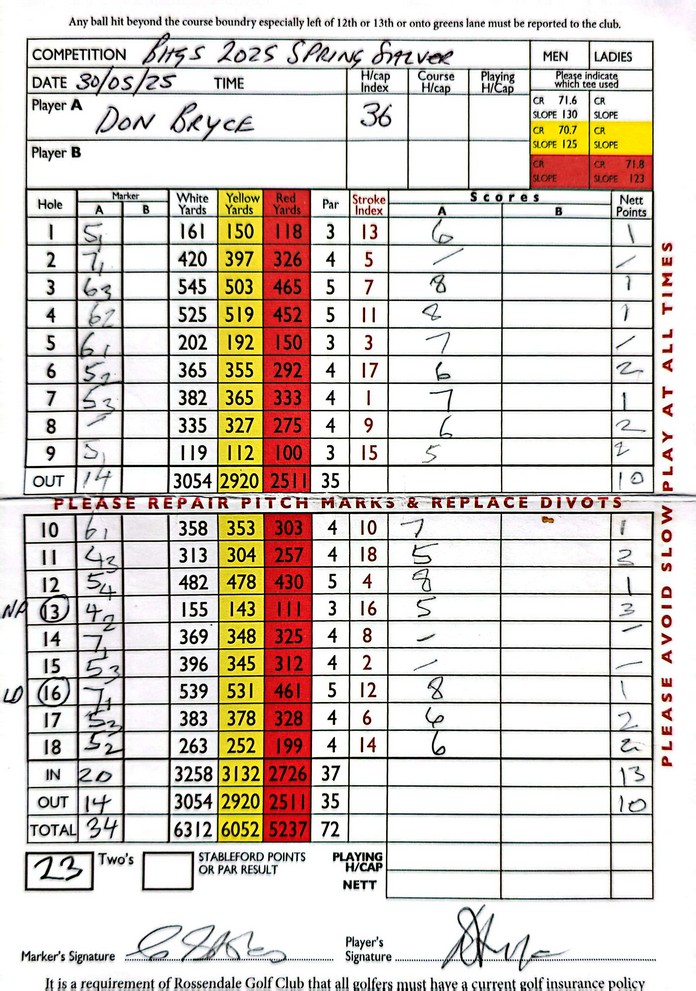 Any ball hit beyond the course boundry especially left of 12th or 13th or onto greens lane must be reported to the club.
COMPETITION BHGS 2025 SPRING SALVER MEN LADIES
DATE 30/05/25 TIME H/cap Index Course H/cap Playing H/Cap Please indicate which tee used
Player A DON BRYCE 36
CR 71.6 SLOPE 130 CR SLOPE
CR 70.7 SLOPE 125 CR SLOPE
Player B
CR SLOPE CR 71.8 SLOPE 123
Hole Marker A B White Yards Yellow Yards Red Yards Par Stroke Index Scores A B Nett Points
1 5, 161 150 118 3 13 6 1
2 7, 420 397 326 4 5 / /
3 6 3 545 503 465 5 7 8 1
4 6 2 525 519 452 5 11 8 1
5 6 1 202 192 150 3 3 7 /
6 5 2 365 355 292 4 17 6 2
7 5 3 382 365 333 4 1 7 1
8 / 335 327 275 4 9 6 2
9 5, 119 112 100 3 15 5 2
OUT 14 3054 2920 2511 35 10
PLEASE REPAIR PITCH MARKS & REPLACE DIVOTS
10 6 1 358 353 303 4 10 7 1
11 4 3 313 304 257 4 18 5 3
12 5 4 482 478 430 5 4 8 1
NP 13 4 2 155 143 111 3 16 5 3
14 7 369 348 325 4 8 – –
15 5 3 396 345 312 4 2 / –
LD 16 7 1 539 531 461 5 12 8 1
17 5 3 383 378 328 4 6 6 2
18 5 2 263 252 199 4 14 6 2
IN 20 3258 3132 2726 37 13
OUT 14 3054 2920 2511 35 10
TOTAL 34 6312 6052 5237 72
23 Two's STABLEFORD POINTS OR PAR RESULT PLAYING H/CAP
NETT
Marker's Signature Player's Signature
It is a requirement of Rossendale Golf Club that all golfers must have a current golf insurance policy
PLEASE AVOID SLOW PLAY AT ALL TIMES